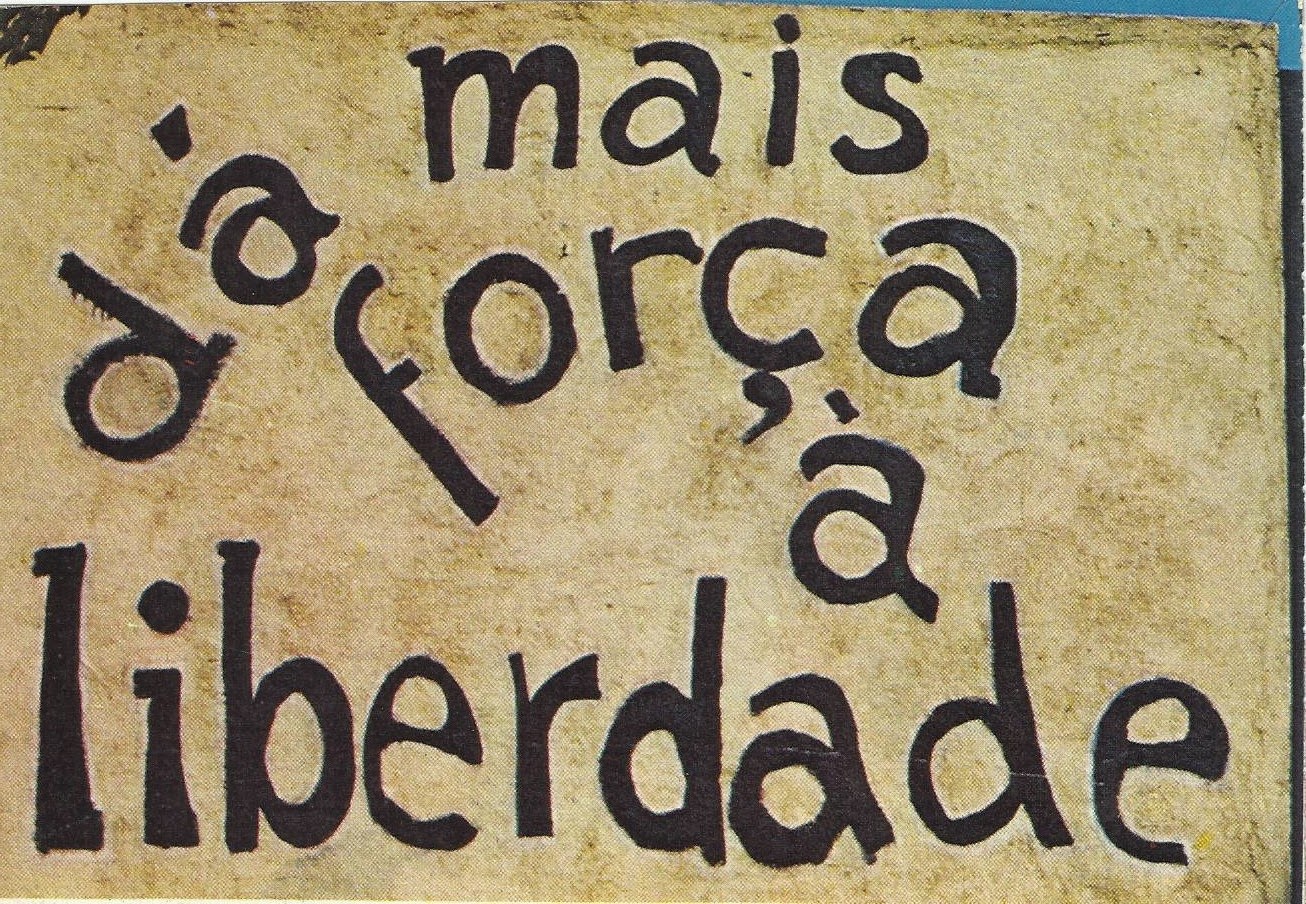 dá mais
força
à
liberdade